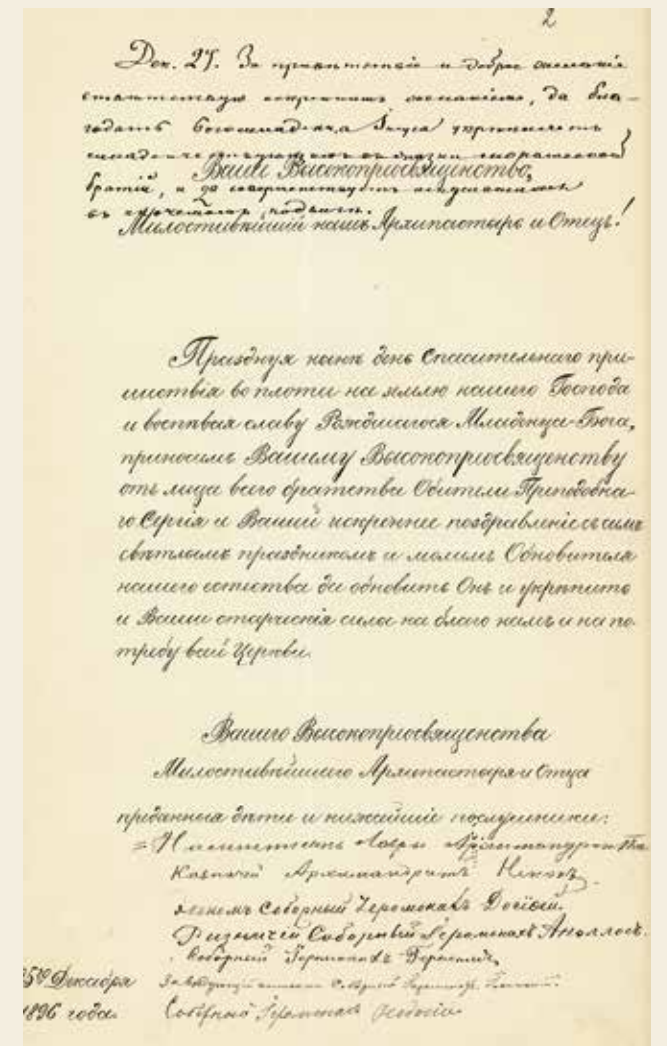 2
Дек. 27. За приветствiе и доброе желанiе
ответствую искреннимъ желанiемъ, да бла-
годать Богомладенца Iисуса укрѣпляетъ
братiй, и да совершенствуетъ
въ
Ваше Высокопреосвященство,
Милостивѣйшiй нашъ Архипастырь и Отецъ!
Празднуя нынѣ день спасительнаго при-
шествiя во плоти на землю нашего Господа
и воспѣвая славу Рождшагося Младенца-Бога,
приносимъ Вашему Высокопреосвященству
отъ лица всего братства Обители Преподобна-
го Сергiя и Вашей искреннее поздравленiе съ симъ
свѣтлымъ праздникомъ и молимъ Обновителя
нашего естества да обновитъ Онъ и укрѣпитъ
и Ваши старческiя силы на благо намъ и на по-
требу всей Церкви.
Вашего Высокопреосвященства
Милостивѣйшаго Архипастыря и Отца
преданныя дѣти и нижайшiе послушники:
Намѣстникъ Лавры Архимандритъ
Казначей Архимандритъ Никонъ
Экономъ Соборный Iеромонахъ Досiѳей.
Ризничiй Соборный Iеромонахъ Аполлосъ.
Соборный Iеромонахъ
Завѣдующiй Соборный Iеромонахъ
Соборный Iеромонахъ
Декабря
1896 года.